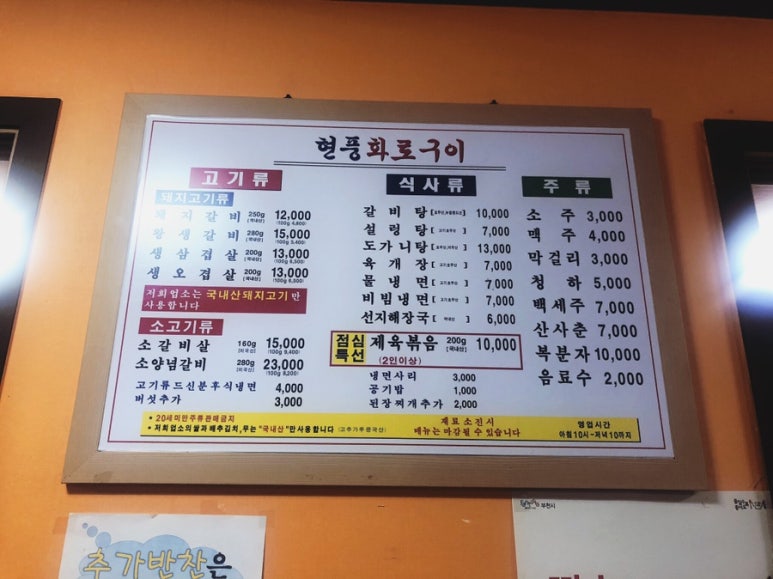 현풍화로구이
고기류
돼지고기류
돼지갈비 250g [국내산] 12,000
왕생갈비 280g [국내산] 15,000
생삼겹살 200g [국내산] 13,000
(100g 6,500)
생오겹살 200g [국내산] 13,000
(100g 6,500)
저희업소는 국내산돼지고기만
사용합니다
소고기류
소갈비살 160g 15,000
(100g 9,400)
소양념갈비 280g 23,000
고기류드신분후식냉면 4,000
버섯추가 3,000
식사류
갈비탕 10,000
설렁탕 7,000
도가니탕 13,000
육개장 7,000
물냉면 7,000
비빔냉면 7,000
선지해장국 6,000
점심
특선
제육볶음 200g [국내산] 10,000
(2인이상)
냉면사리 3,000
공기밥 1,000
된장찌개추가 2,000
주류
소주 3,000
맥주 4,000
막걸리 3,000
청하 5,000
백세주 7,000
산사춘 7,000
복분자 10,000
음료수 2,000
• 20세미만주류판매금지
• 저희업소의쌀과배추김치,무는 "국내산"만사용합니다 (고추가루중국산)
재료 소진시
메뉴는 마감될 수 있습니다
영업시간
아침10시~저녁10까지
추가반찬은
부천시